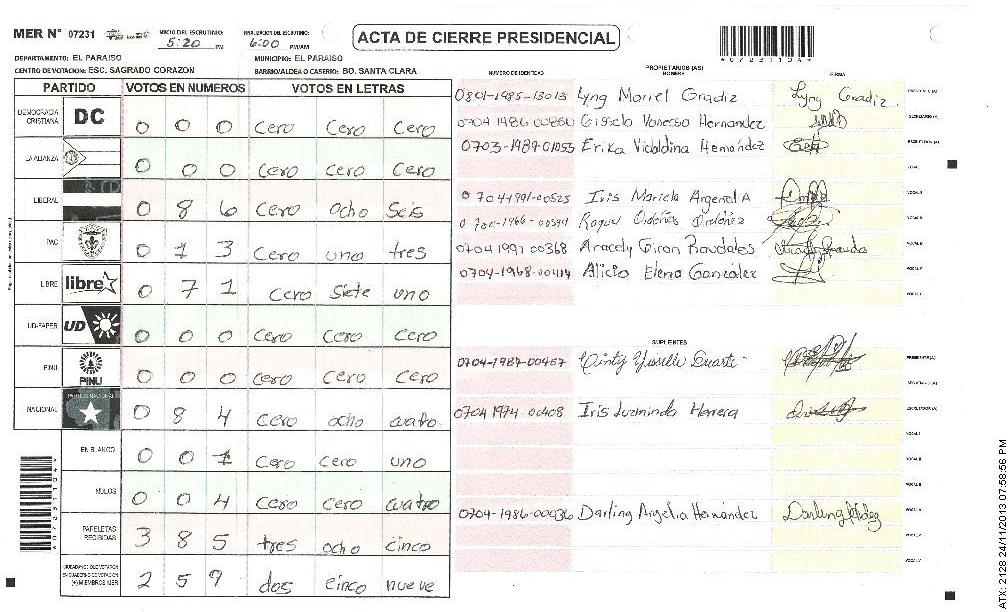 MER N° 07231
INICIO DEL ESCRUTINIO: 5:20 PM
FINALIZACION DEL ESCRUTINIO: 6:00 PM/AM
ACTA DE CIERRE PRESIDENCIAL
*07231104*
DEPARTAMENTO: EL PARAISO
MUNICIPIO: EL PARAISO
CENTRO DE VOTACION: ESC. SAGRADO CORAZON
BARRIO/ALDEA O CASERIO: BO. SANTA CLARA
PARTIDO VOTOS EN NUMEROS VOTOS EN LETRAS
DEMOCRACIA CRISTIANA DC 0 0 0 Cero Cero Cero
LA ALIANZA 0 0 0 Cero Cero Cero
LIBERAL 0 8 6 Cero ocho Seis
PAC 0 1 3 Cero uno tres
LIBRE libre 0 7 1 Cero Siete uno
UD-FAPER UD 0 0 0 Cero Cero Cero
PINU PINU 0 0 0 Cero Cero Cero
NACIONAL 0 8 4 Cero ocho cuatro
EN BLANCO 0 0 1 Cero Cero uno
NULOS 0 0 4 Cero Cero cuatro
PAPELETAS RECIBIDAS 3 8 5 tres ocho cinco
CIUDADANOS QUE VOTARON EN CUADERNO DE VOTACION (+) MIEMBROS MER 2 5 9 dos cinco nueve
NUMERO DE IDENTIDAD PROPIETARIOS (AS) NOMBRE FIRMA
0801-1985-13013 Lyng Mariel Gradiz Lyng Gradiz PRESIDENTE (A)
0704 1986 00850 Gissela Vanessa Hernandez SECRETARIO (A)
0703-1989-01055 Erika Vicaldina Hernández ESCRUTADOR (A)
VOCAL I
0704-1991-00525 Iris Mariela Argenal A VOCAL II
Raquel Ordóñez Ordóñez VOCAL III
0704 1991 00368 Aracely Giron VOCAL IV
0704-1968-00414 Alicia Elena González VOCAL V
SUPLENTES
0704-1987-00457 Duarte PRESIDENTE (A)
SECRETARIO (A)
0704 1974-00408 Iris Luzminda Herrera ESCRUTADOR (A)
VOCAL I
VOCAL II
VOCAL III
0704-1986-00036 Darling Argelia Hernández VOCAL IV
VOCAL V
ATX: 2128 24/11/2013 07:58:56 PM